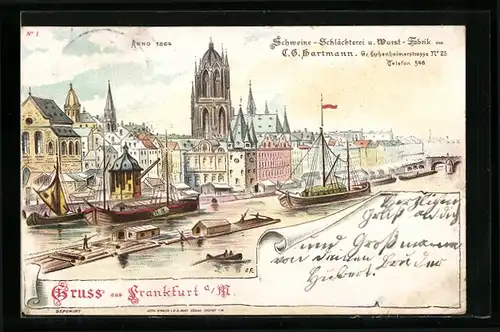 No 1
Anno 1864
Schweine-Schlächterei u. Wurst-Fabrik von
C.G. Hartmann. Gr. Eschenheimerstrasse No 23
Telefon 548
Herzlichen
Gruß
und Großmama
von deinem Bruder
Hubert.
Gruss aus Frankfurt a/M.
DEPONIRT